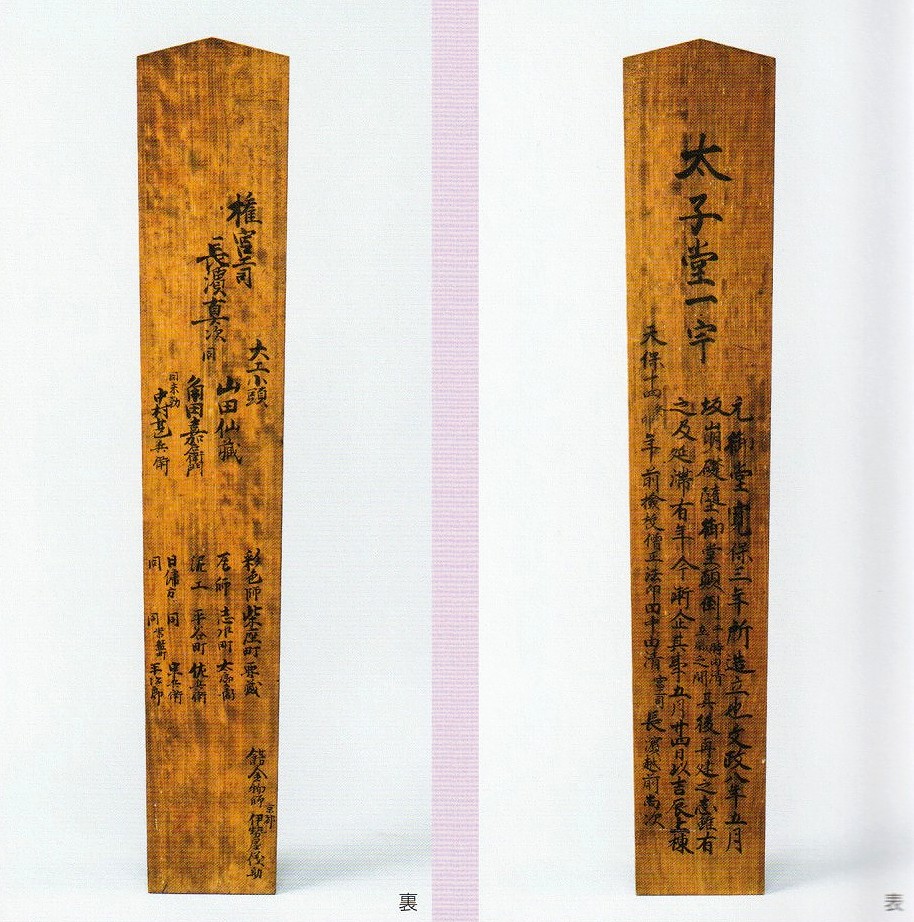 太子堂一宇
元御堂寛保三年所造立也文政八年五月
坂崩礎墮御堂顛倒其後再建之志雖有
之及延滞有年今漸企其事五月廿四日以吉辰上棟
天保十四癸卯年前検校僧正法印田中由清宮司長濱越前尚次
表
権宮司
長濱真次
同
大工小頭
山田仙藏
角田嘉右衛門
同末勤
中村甚兵衛
彩色師 柴座町
瓦師 志水町
泥工 平谷町 佐兵衛
日傭方 同
同 同常盤町 平次郎
錺金物師 京都 伊勢屋茂助
裏